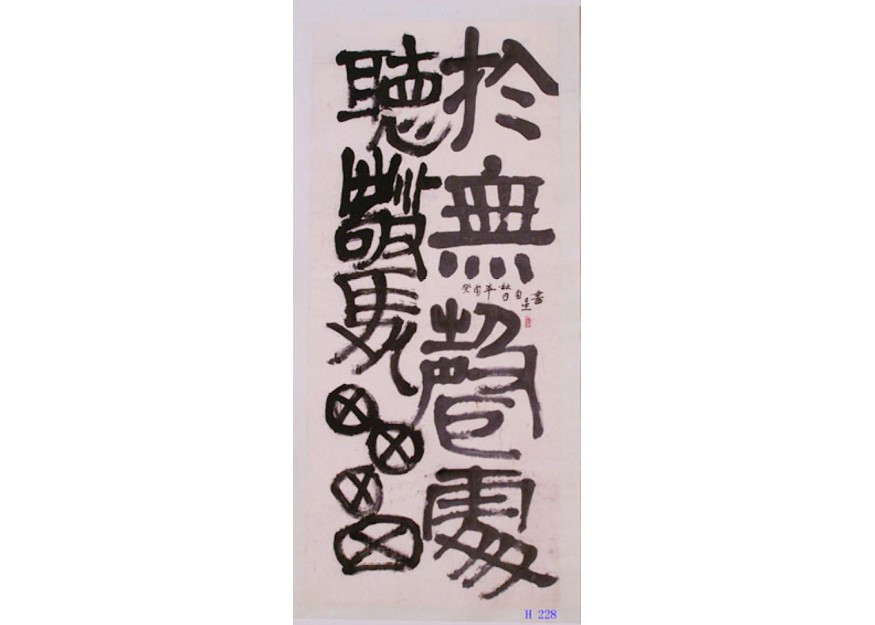 於無聲處
聽驚雷
癸酉年
書
H 228